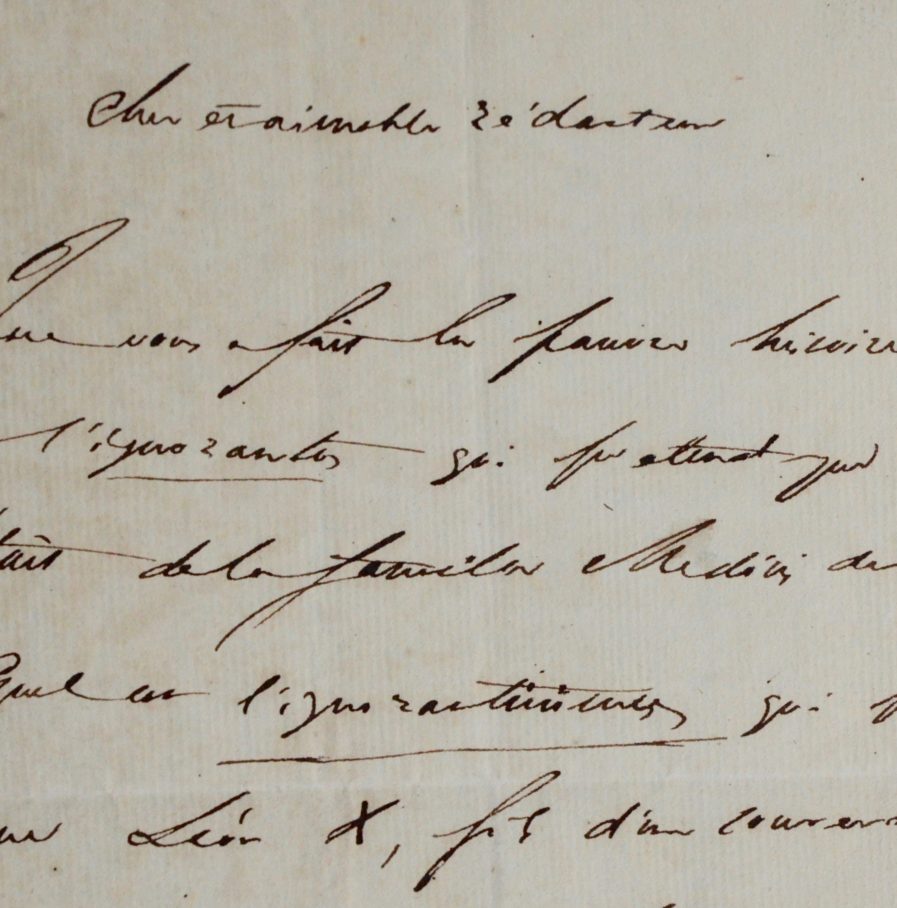 Cher et aimable rédacteur
Que vous a fait la pauvre histoire
l'ignorantus qui prettend que
était de la famille Medicis de
quel est l'ignorantissimus qui
que Léon X, fils d'un souverain